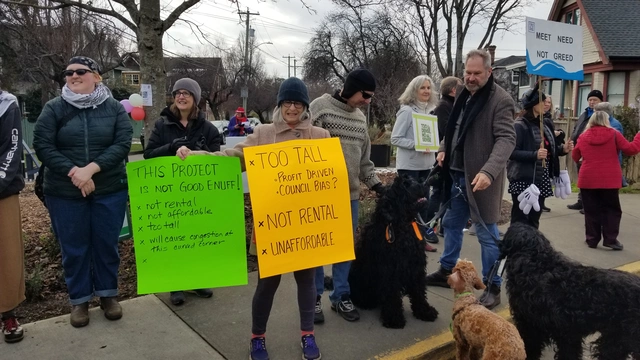 THIS PROJECT
IS NOT GOOD ENUFF!
x not rental
x not affordable
x too tall
x will cause congestion at
this corner
x
x TOO TALL
x PROFIT DRIVEN
x COUNCIL BIAS?
x NOT RENTAL
x UNAFFORDABLE
MEET NEED
NOT GREED